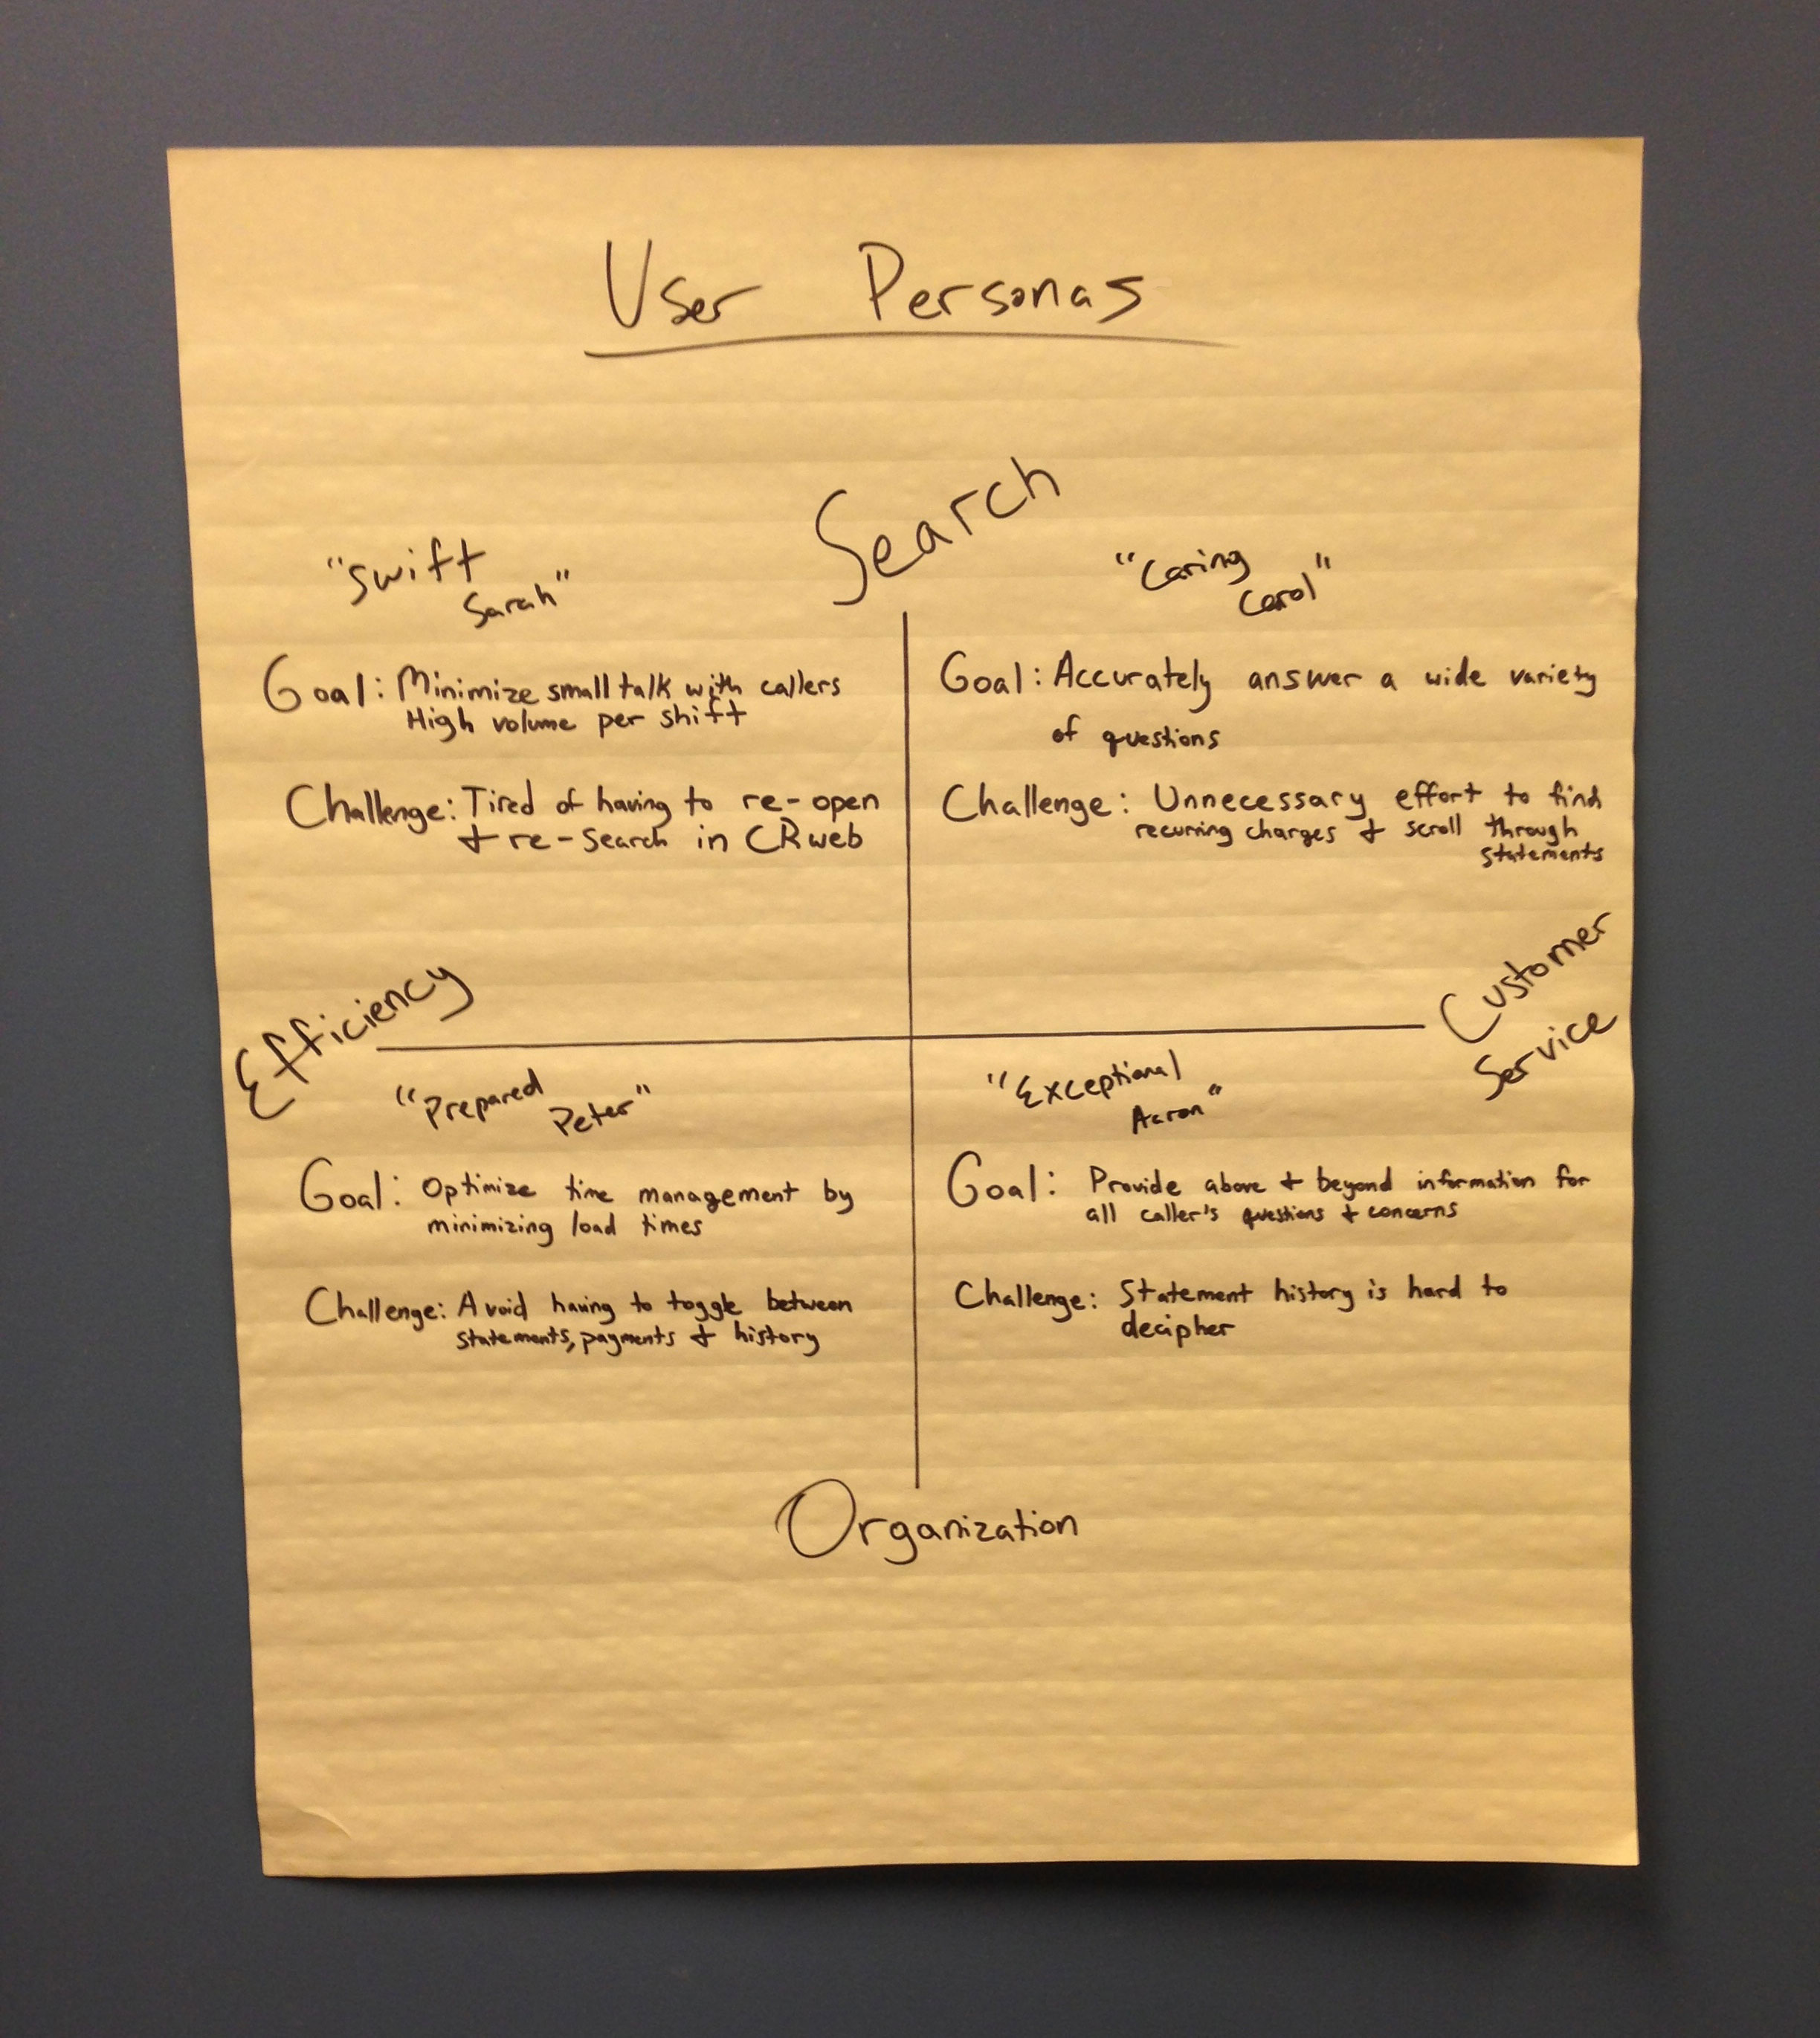 User Personas
Search
"Swift
Sarah"
Goal: Minimize small talk with callers
High volume per shift
Challenge: Tired of having to re-open
+ re-search in CRweb
"Caring
Carol"
Goal: Accurately answer a wide variety
of questions
Challenge: Unnecessary effort to find
recurring charges + scroll through
statements
Efficiency
Customer
Service
"Prepared
Peter"
Goal: Optimize time management by
minimizing load times
Challenge: Avoid having to toggle between
statements, payments + history
"Exceptional
Aaron"
Goal: Provide above + beyond information for
all caller's questions + concerns
Challenge: Statement history is hard to
decipher
Organization